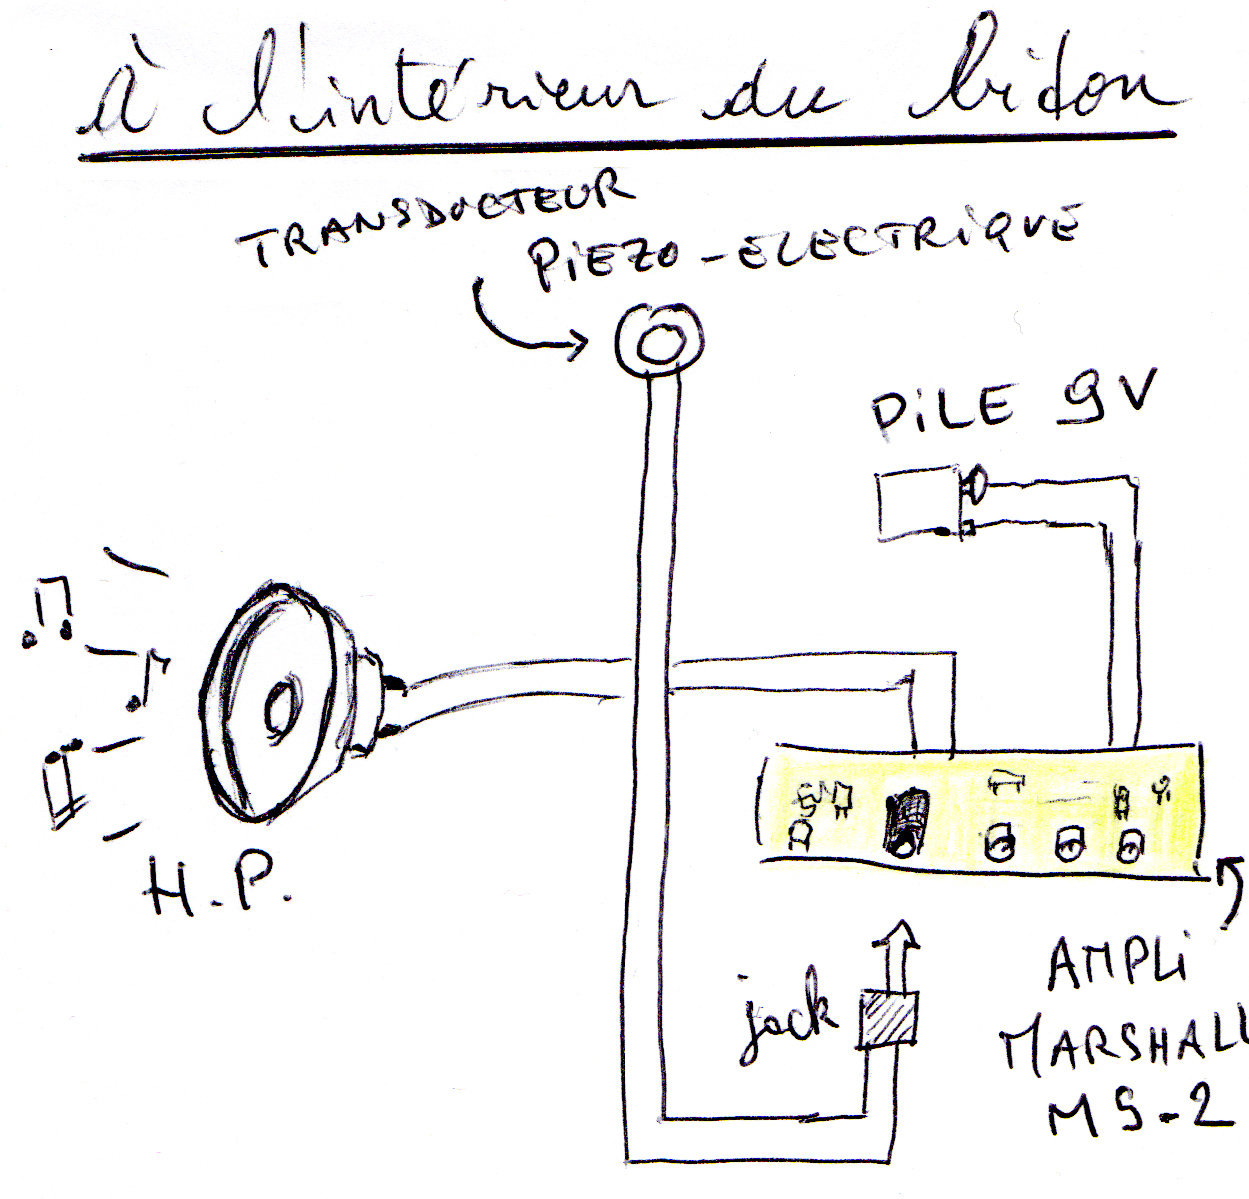 à l'intérieur du bidon
TRANSDUCTEUR
PiEZO-ELECTRiQUE
PiLE 9V
H.P.
jack
AMPLi
MARSHALL
MS-2